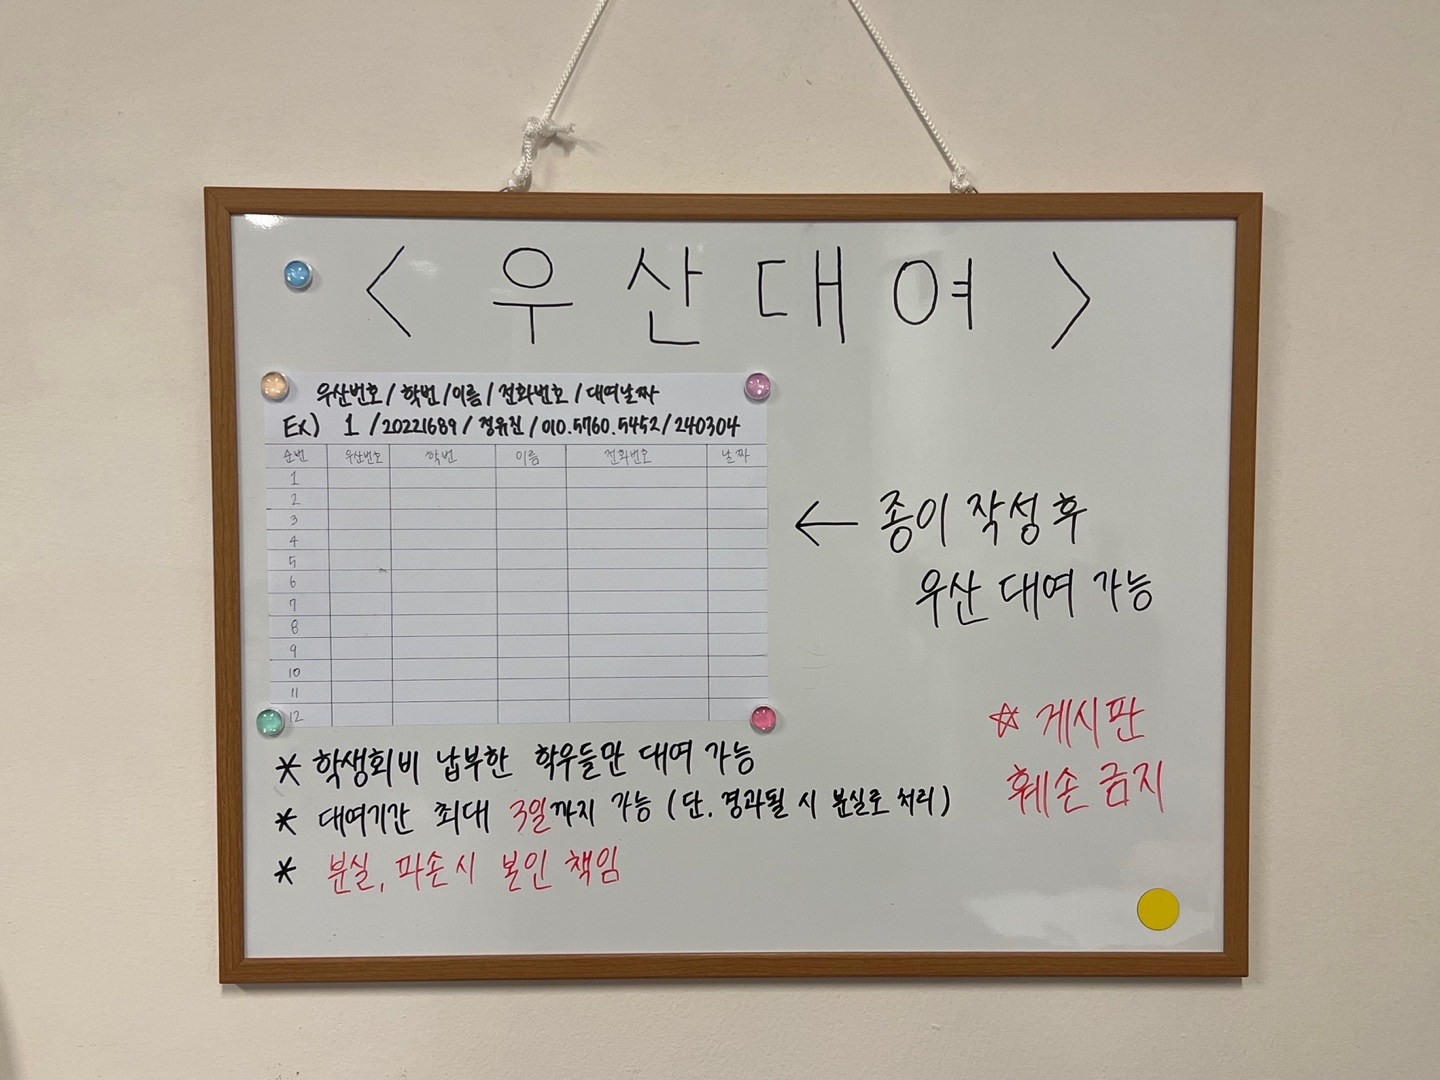 < 우산대여 >
우산번호 / 학번 / 이름 / 전화번호 / 대여날짜
Ex) 1 / 20221689 / 정유진 / 010.5760.5452 / 240304
순번 우산번호 학번 이름 전화번호 날짜
1
2
3
4
5
6
7
8
9
10
11
12
← 종이 작성 후
우산 대여 가능
☆ 게시판
훼손 금지
* 학생회비 납부한 학우들만 대여 가능
* 대여기간 최대 3일까지 가능 (단, 경과될 시 분실로 처리)
* 분실, 파손 시 본인 책임